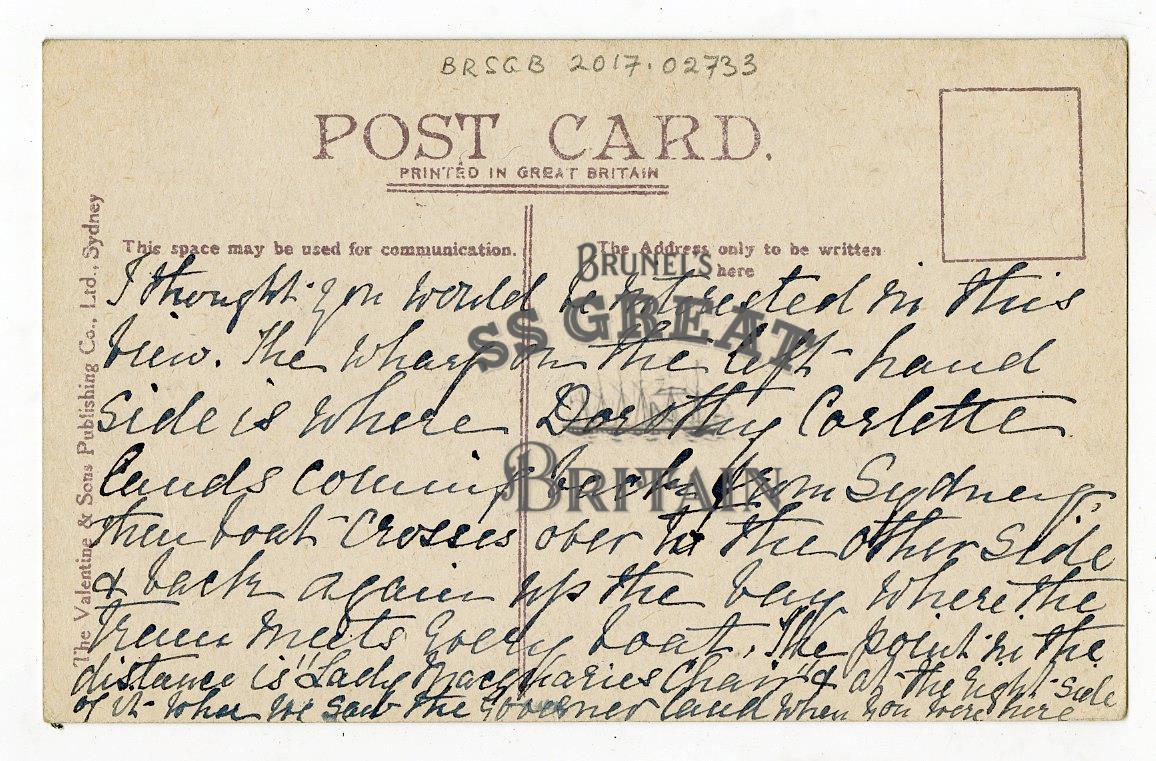 BRSGB 2017.02733
POST CARD.
PRINTED IN GREAT BRITAIN
The Valentine & Sons Publishing Co., Ltd., Sydney
This space may be used for communication.
The Address only to be written
here
BRUNEL'S
SS GREAT
BRITAIN
I thought you would be interested in this
view. The wharf on the left hand
side is where Dorothy Corlette
lands coming back from Sydney,
then boat crosses over to the other side
& back again up the bay where the
tram meets every boat. The point in the
distance is "Lady Macquaries Chair" & at the right side
of it where we saw the Governer land when you were here